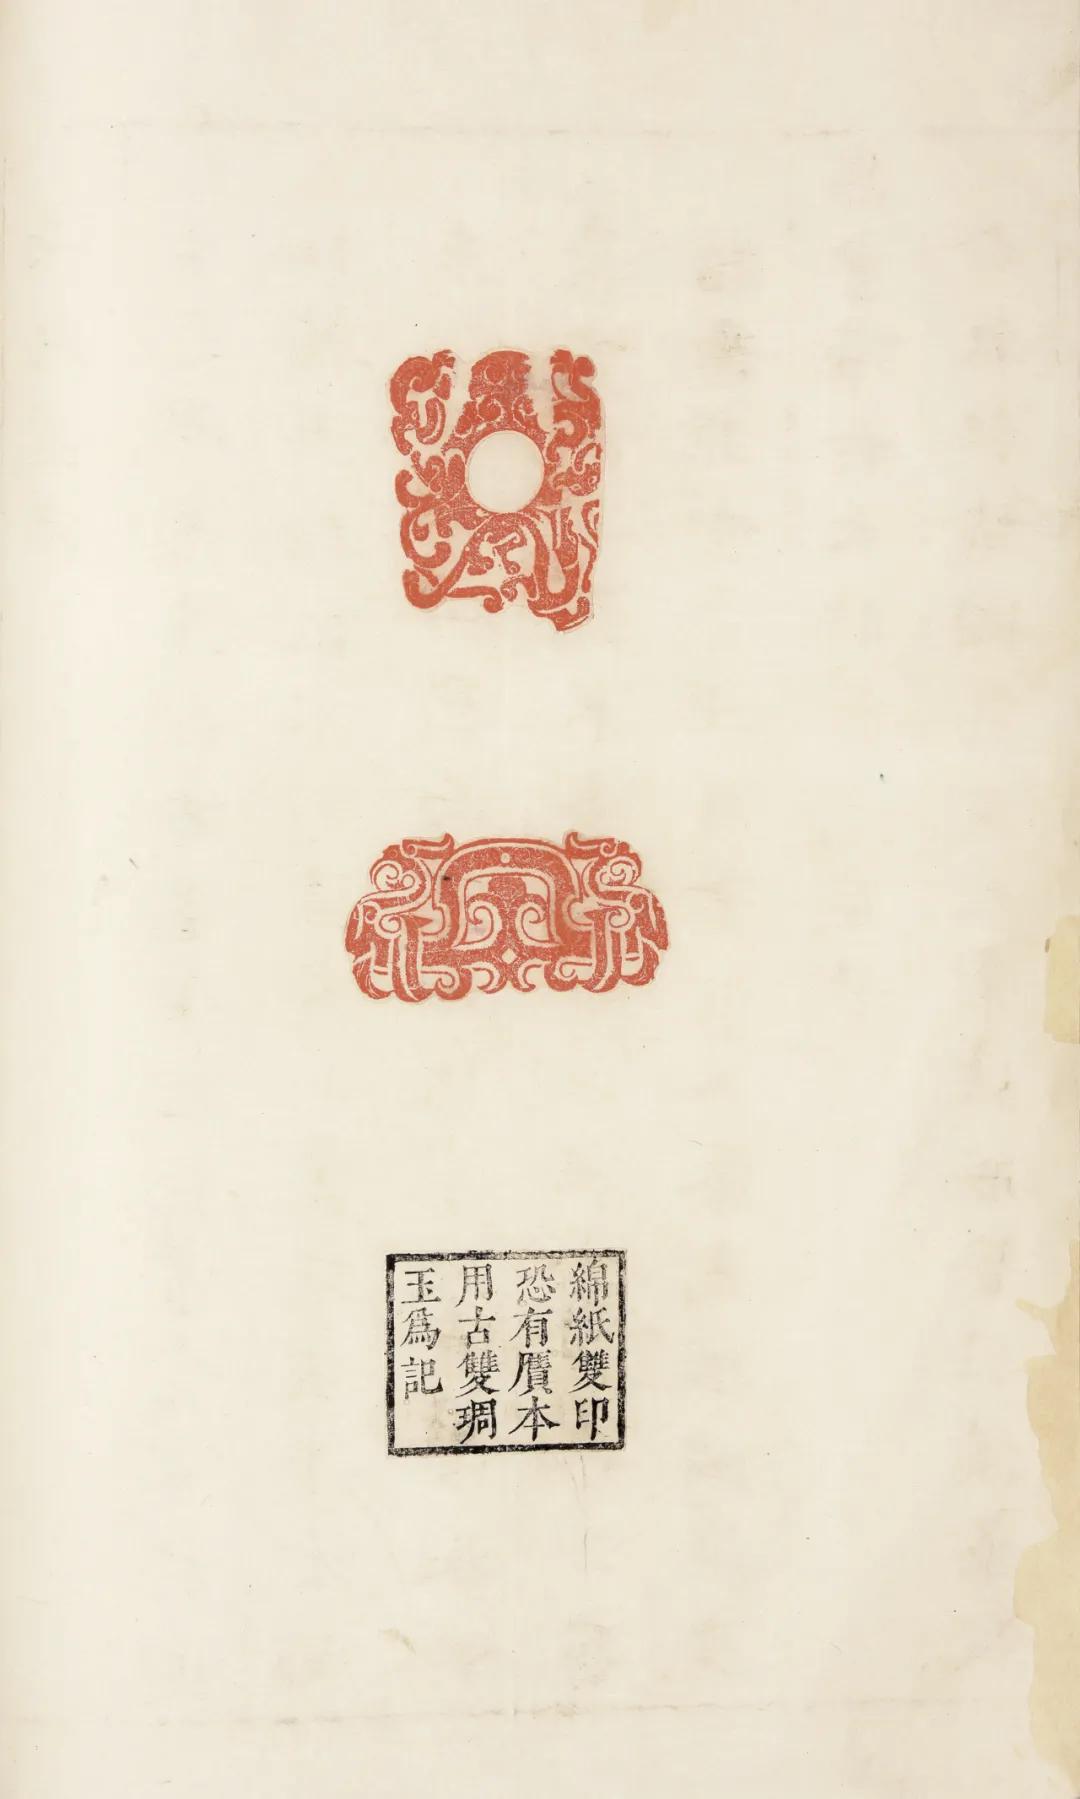 綿紙雙印
恐有贋本
用古雙琱
玉爲記